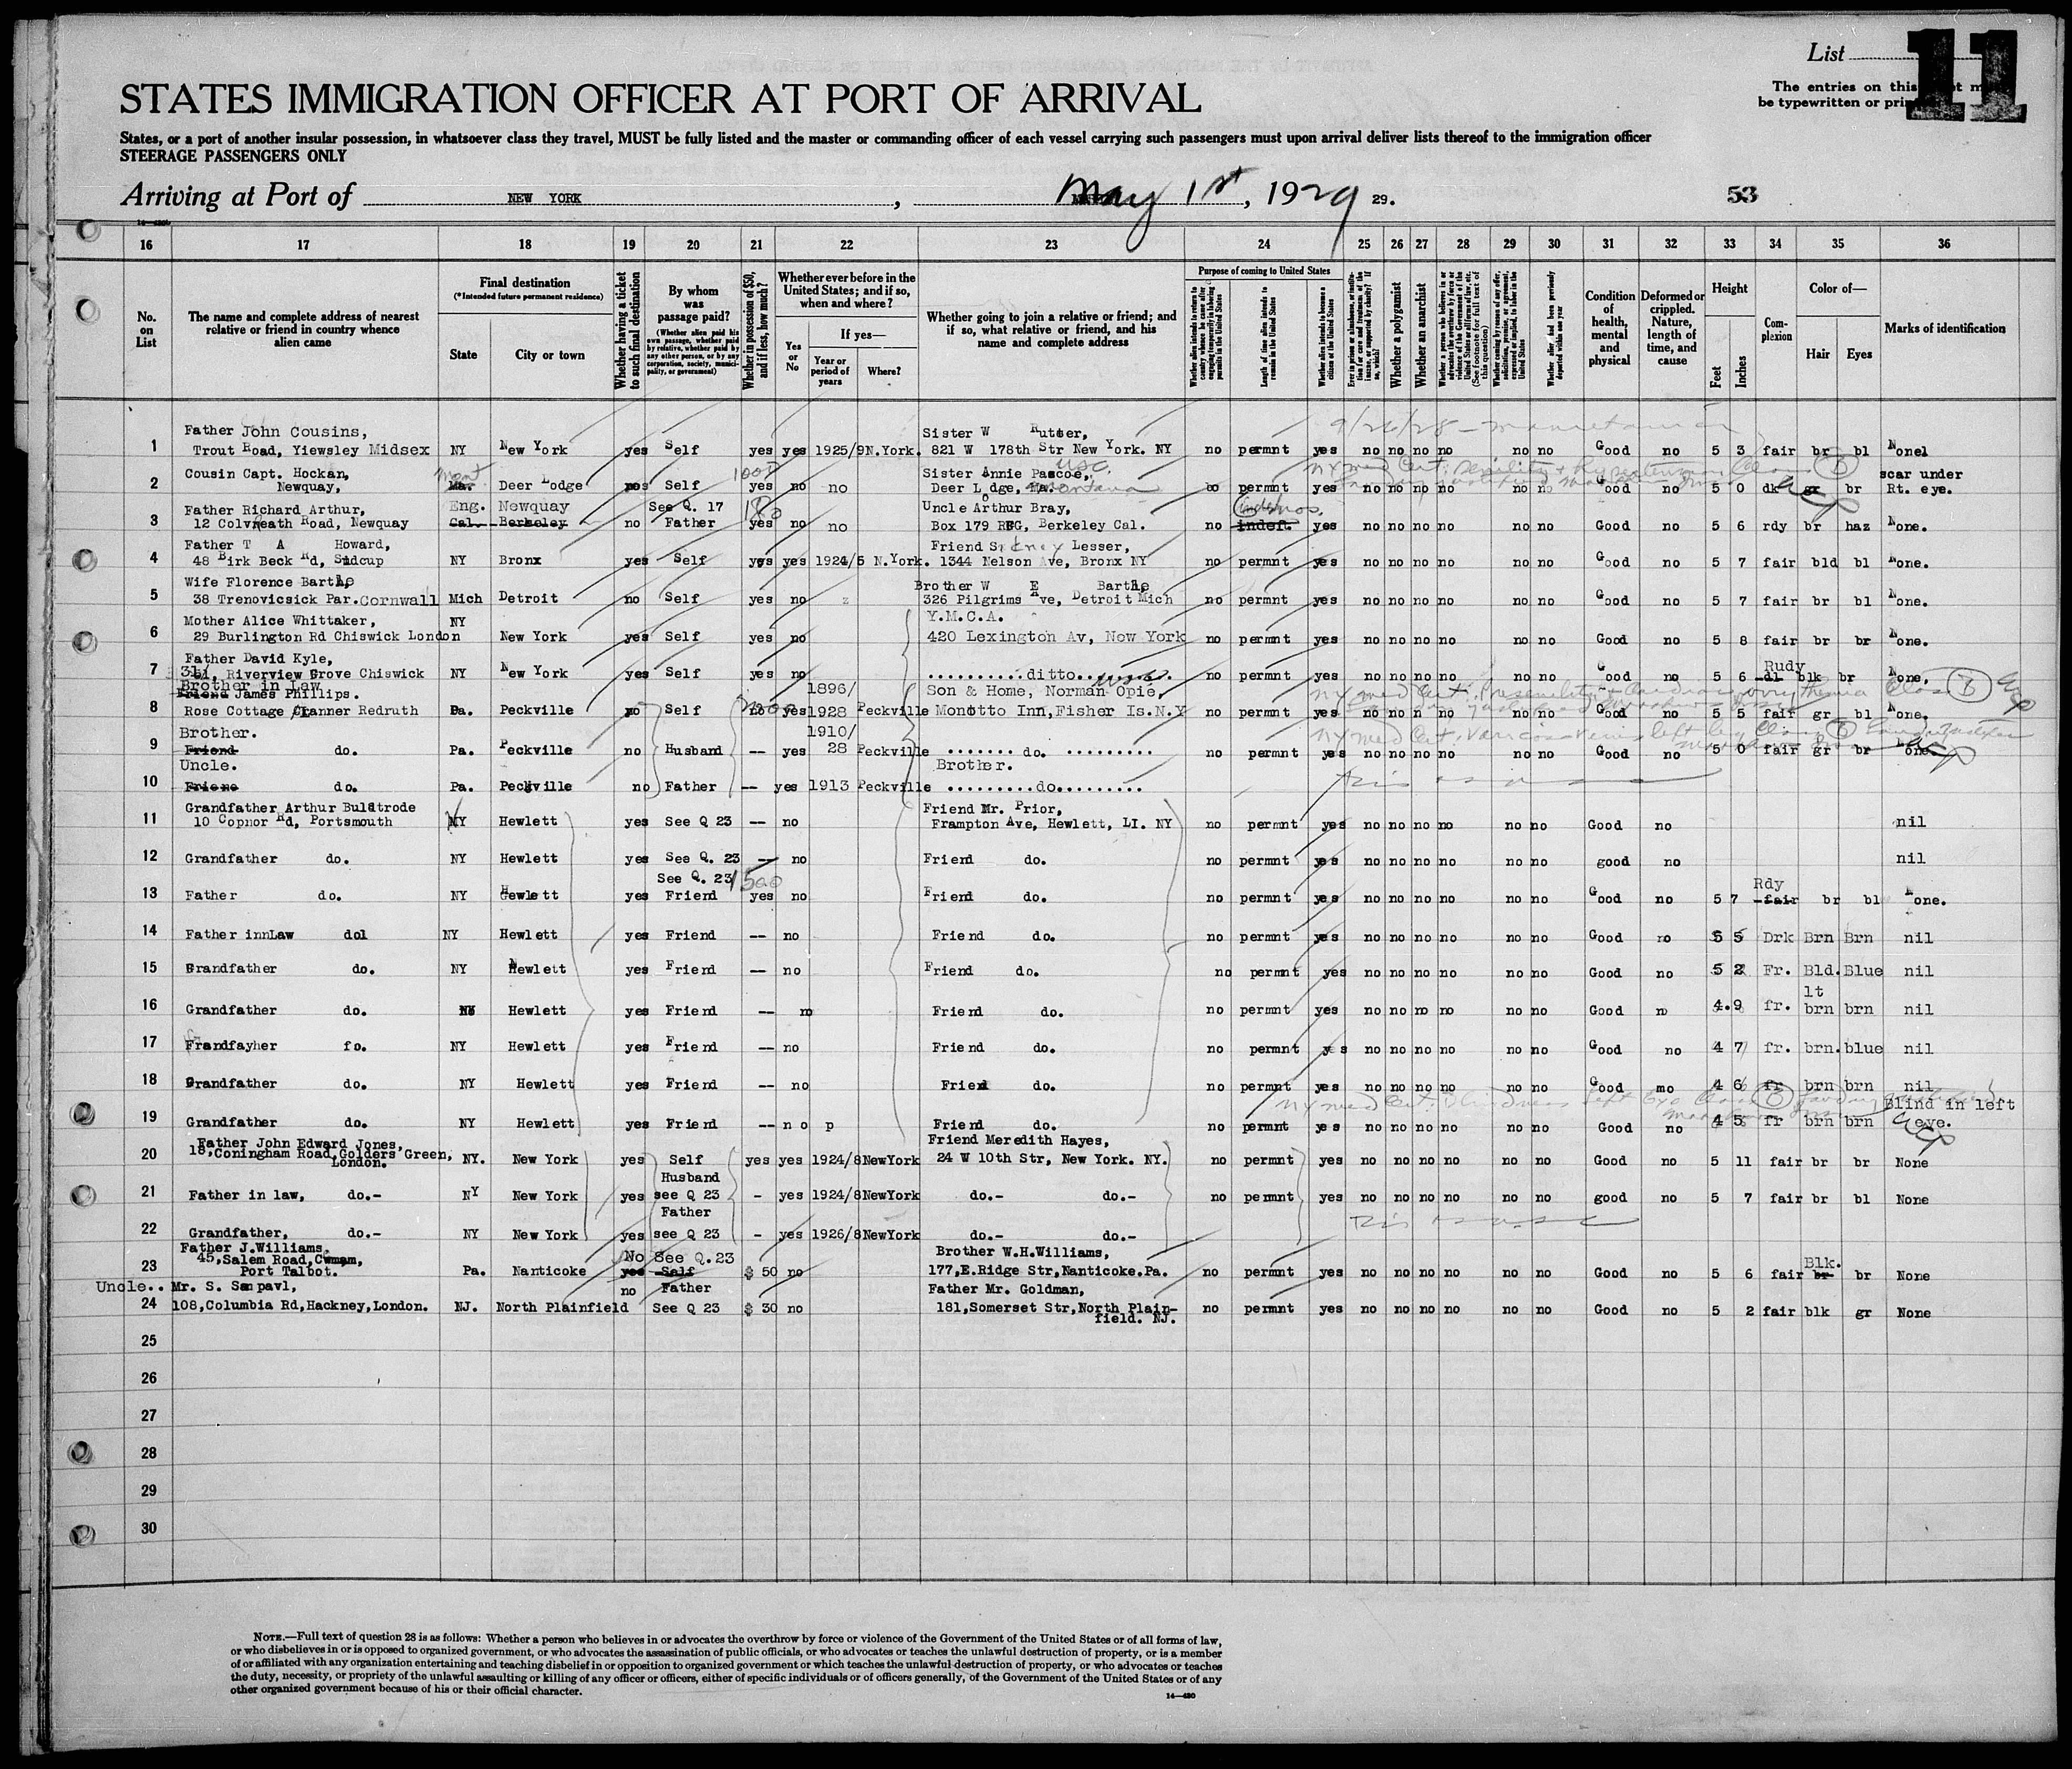 List 11
The entries on this
be typewritten or
STATES IMMIGRATION OFFICER AT PORT OF ARRIVAL
States, or a port of another insular possession, in whatsoever class they travel, MUST be fully listed and the master or commanding officer of each vessel carrying such passengers must upon arrival deliver lists thereof to the immigration officer
STEERAGE PASSENGERS ONLY
Arriving at Port of NEW YORK, May 1st, 1929 29. 53
16 17 18 19 20 21 22 23 24 25 26 27 28 29 30 31 32 33 34 35 36
No. on List
The name and complete address of nearest relative or friend in country whence alien came
Final destination
(*Intended future permanent residence)
State City or town
Whether having a ticket to such final destination
By whom was passage paid?
(Whether alien paid his own passage, whether paid by relative, whether paid by any other person, or by any corporation, society, municipality, or government)
Whether in possession of $50, and if less, how much?
Whether ever before in the United States; and if so, when and where?
Yes or No
If yes—
Year or period of years Where?
Whether going to join a relative or friend; and if so, what relative or friend, and his name and complete address
Purpose of coming to United States
Length of time alien intends to remain in the United States
Whether alien intends to become a citizen of the United States
Whether a polygamist
Whether an anarchist
Condition of health, mental and physical
Deformed or crippled. Nature, length of time, and cause
Height
Feet Inches
Complexion
Color of—
Hair Eyes
Marks of identification
Father John Cousins, Sister W Rutter,
1 Trout Road, Yiewsley Midsex NY New York yes Self yes yes 1925/9 N.York. 821 W 178th Str New York. NY no permnt yes no no no no no no Good no 5 3 fair br bl Nonel
Cousin Capt. Hockan, Mont. 100 Sister Annie Pascoe, USC scar under
2 Newquay, Ma. Deer Lodge no Self yes no no Deer Lodge, Ma. Montana no permnt yes no no no no no no Good no 5 0 dk gr br Rt. eye.
Father Richard Arthur, Eng. Newquay See Q. 17 180 Uncle Arthur Bray,
3 12 Colvreath Road, Newquay Cal. Berkeley no Father yes no no Box 179 RFG, Berkeley Cal. no indef. yes no no no no no no Good no 5 6 rdy br haz None.
Father T A Howard, Friend Sidney Lesser,
4 48 Birk Beck Rd, Sidcup NY Bronx yes Self yes yes 1924/5 N.York. 1344 Nelson Ave, Bronx NY no permnt yes no no no no no no Good no 5 7 fair bld bl None.
Wife Florence Barthe Brother W E Barthe
5 38 Trenovicsick Par. Cornwall Mich Detroit no Self yes no 326 Pilgrims Ave, Detroit Mich no permnt yes no no no no no no Good no 5 7 fair br bl None.
Mother Alice Whittaker, NY Y.M.C.A.
6 29 Burlington Rd Chiswick London New York yes Self yes no 420 Lexington Av, New York no permnt yes no no no no no no Good no 5 8 fair br br None.
Father David Kyle, Rudy
7 31, Riverview Grove Chiswick NY New York yes Self yes no ..........ditto.......... no permnt yes no no no no no no Good no 5 6 dl blk br None.
Brother in Law
Friend James Phillips. 1896/ Son & Home, Norman Opie, USC
8 Rose Cottage Tranner Redruth Pa. Peckville no Self no yes 1928 Peckville Monotto Inn, Fisher Is. N.Y no permnt yes no no n no no no Good no 5 5 fair gr bl None.
Brother. 1910/
9 Friend do. Pa. Peckville no Husband -- yes 28 Peckville ....... do. .......... no permnt yes no no no no no no Good no 5 0 fair gr br one.
Uncle. Brother.
10 Friene do. Pa. Peckville no Father -- yes 1913 Peckville .........do.........
Grandfather Arthur Bulstrode Friend Mr. Prior,
11 10 Copnor Rd, Portsmouth NY Hewlett yes See Q 23 -- no Frampton Ave, Hewlett, LI. NY no permnt yes no no no no no no Good no nil
12 Grandfather do. NY Hewlett yes See Q. 23 -- no Friend do. no permnt yes no no no no no no good no nil
See Q. 23 1500 Rdy
13 Father do. NY Hewlett yes Friend yes no Friend do. no permnt yes no no no no no no Good no 5 7 fair br bl None.
14 Father innLaw dol NY Hewlett yes Friend -- no Friend do. no permnt yes no no no no no no Good no 5 5 Drk Brn Brn nil
15 Grandfather do. NY Hewlett yes Friend -- no Friend do. no permnt yes no no no no no no Good no 5 2 Fr. Bld. Blue nil
lt
16 Grandfather do. NY Hewlett yes Friend -- no Friend do. no permnt yes no no no no no no Good no 4.9 fr. brn brn nil
17 Frandfayher fo. NY Hewlett yes Friend -- no Friend do. no permnt yes no no no no no no Good no 4 7 fr. brn. blue nil
18 Grandfather do. NY Hewlett yes Friend -- no Friend do. no permnt yes no no no no no no Good mo 4 6 fr brn brn nil
Blind in left
19 Grandfather do. NY Hewlett yes Friend -- no p Friend do. no permnt yes no no no no no no Good no 4 5 fr brn brn eye.
Father John Edward Jones, Friend Meredith Hayes,
20 18, Coningham Road, Golders Green, London. NY. New York yes Self yes yes 1924/8 NewYork 24 W 10th Str, New York. NY. no permnt yes no no no no no no Good no 5 11 fair br br None
Husband
21 Father in law, do.- NY New York yes see Q 23 - yes 1924/8 NewYork do.- do.- no permnt yes no no no no no no good no 5 7 fair br bl None
Father
22 Grandfather, do.- NY New York yes see Q 23 - yes 1926/8 NewYork do.- do.-
Father J. Williams. No See Q.23 Brother W.H.Williams, Blk.
23 45, Salem Road, Cwmam, Port Talbot. Pa. Nanticoke yes Self $ 50 no 177, E.Ridge Str, Nanticoke. Pa. no permnt yes no no no no no no Good no 5 6 fair br br None
Uncle.. Mr. S. Sampavl, no Father Father Mr. Goldman,
24 108, Columbia Rd, Hackney, London. NJ. North Plainfield See Q 23 $ 30 no 181, Somerset Str, North Plain-field. NJ. no permnt yes no no no no no no Good no 5 2 fair blk gr None
25
26
27
28
29
30
NOTE.—Full text of question 28 is as follows: Whether a person who believes in or advocates the overthrow by force or violence of the Government of the United States or of all forms of law,
or who disbelieves in or is opposed to organized government, or who advocates the assassination of public officials, or who advocates or teaches the unlawful destruction of property, or is a member
of or affiliated with any organization entertaining and teaching disbelief in or opposition to organized government or which teaches the unlawful destruction of property, or who advocates or teaches
the duty, necessity, or propriety of the unlawful assaulting or killing of any officer or officers, either of specific individuals or of officers generally, of the Government of the United States or of any
other organized government because of his or their official character.
14—430